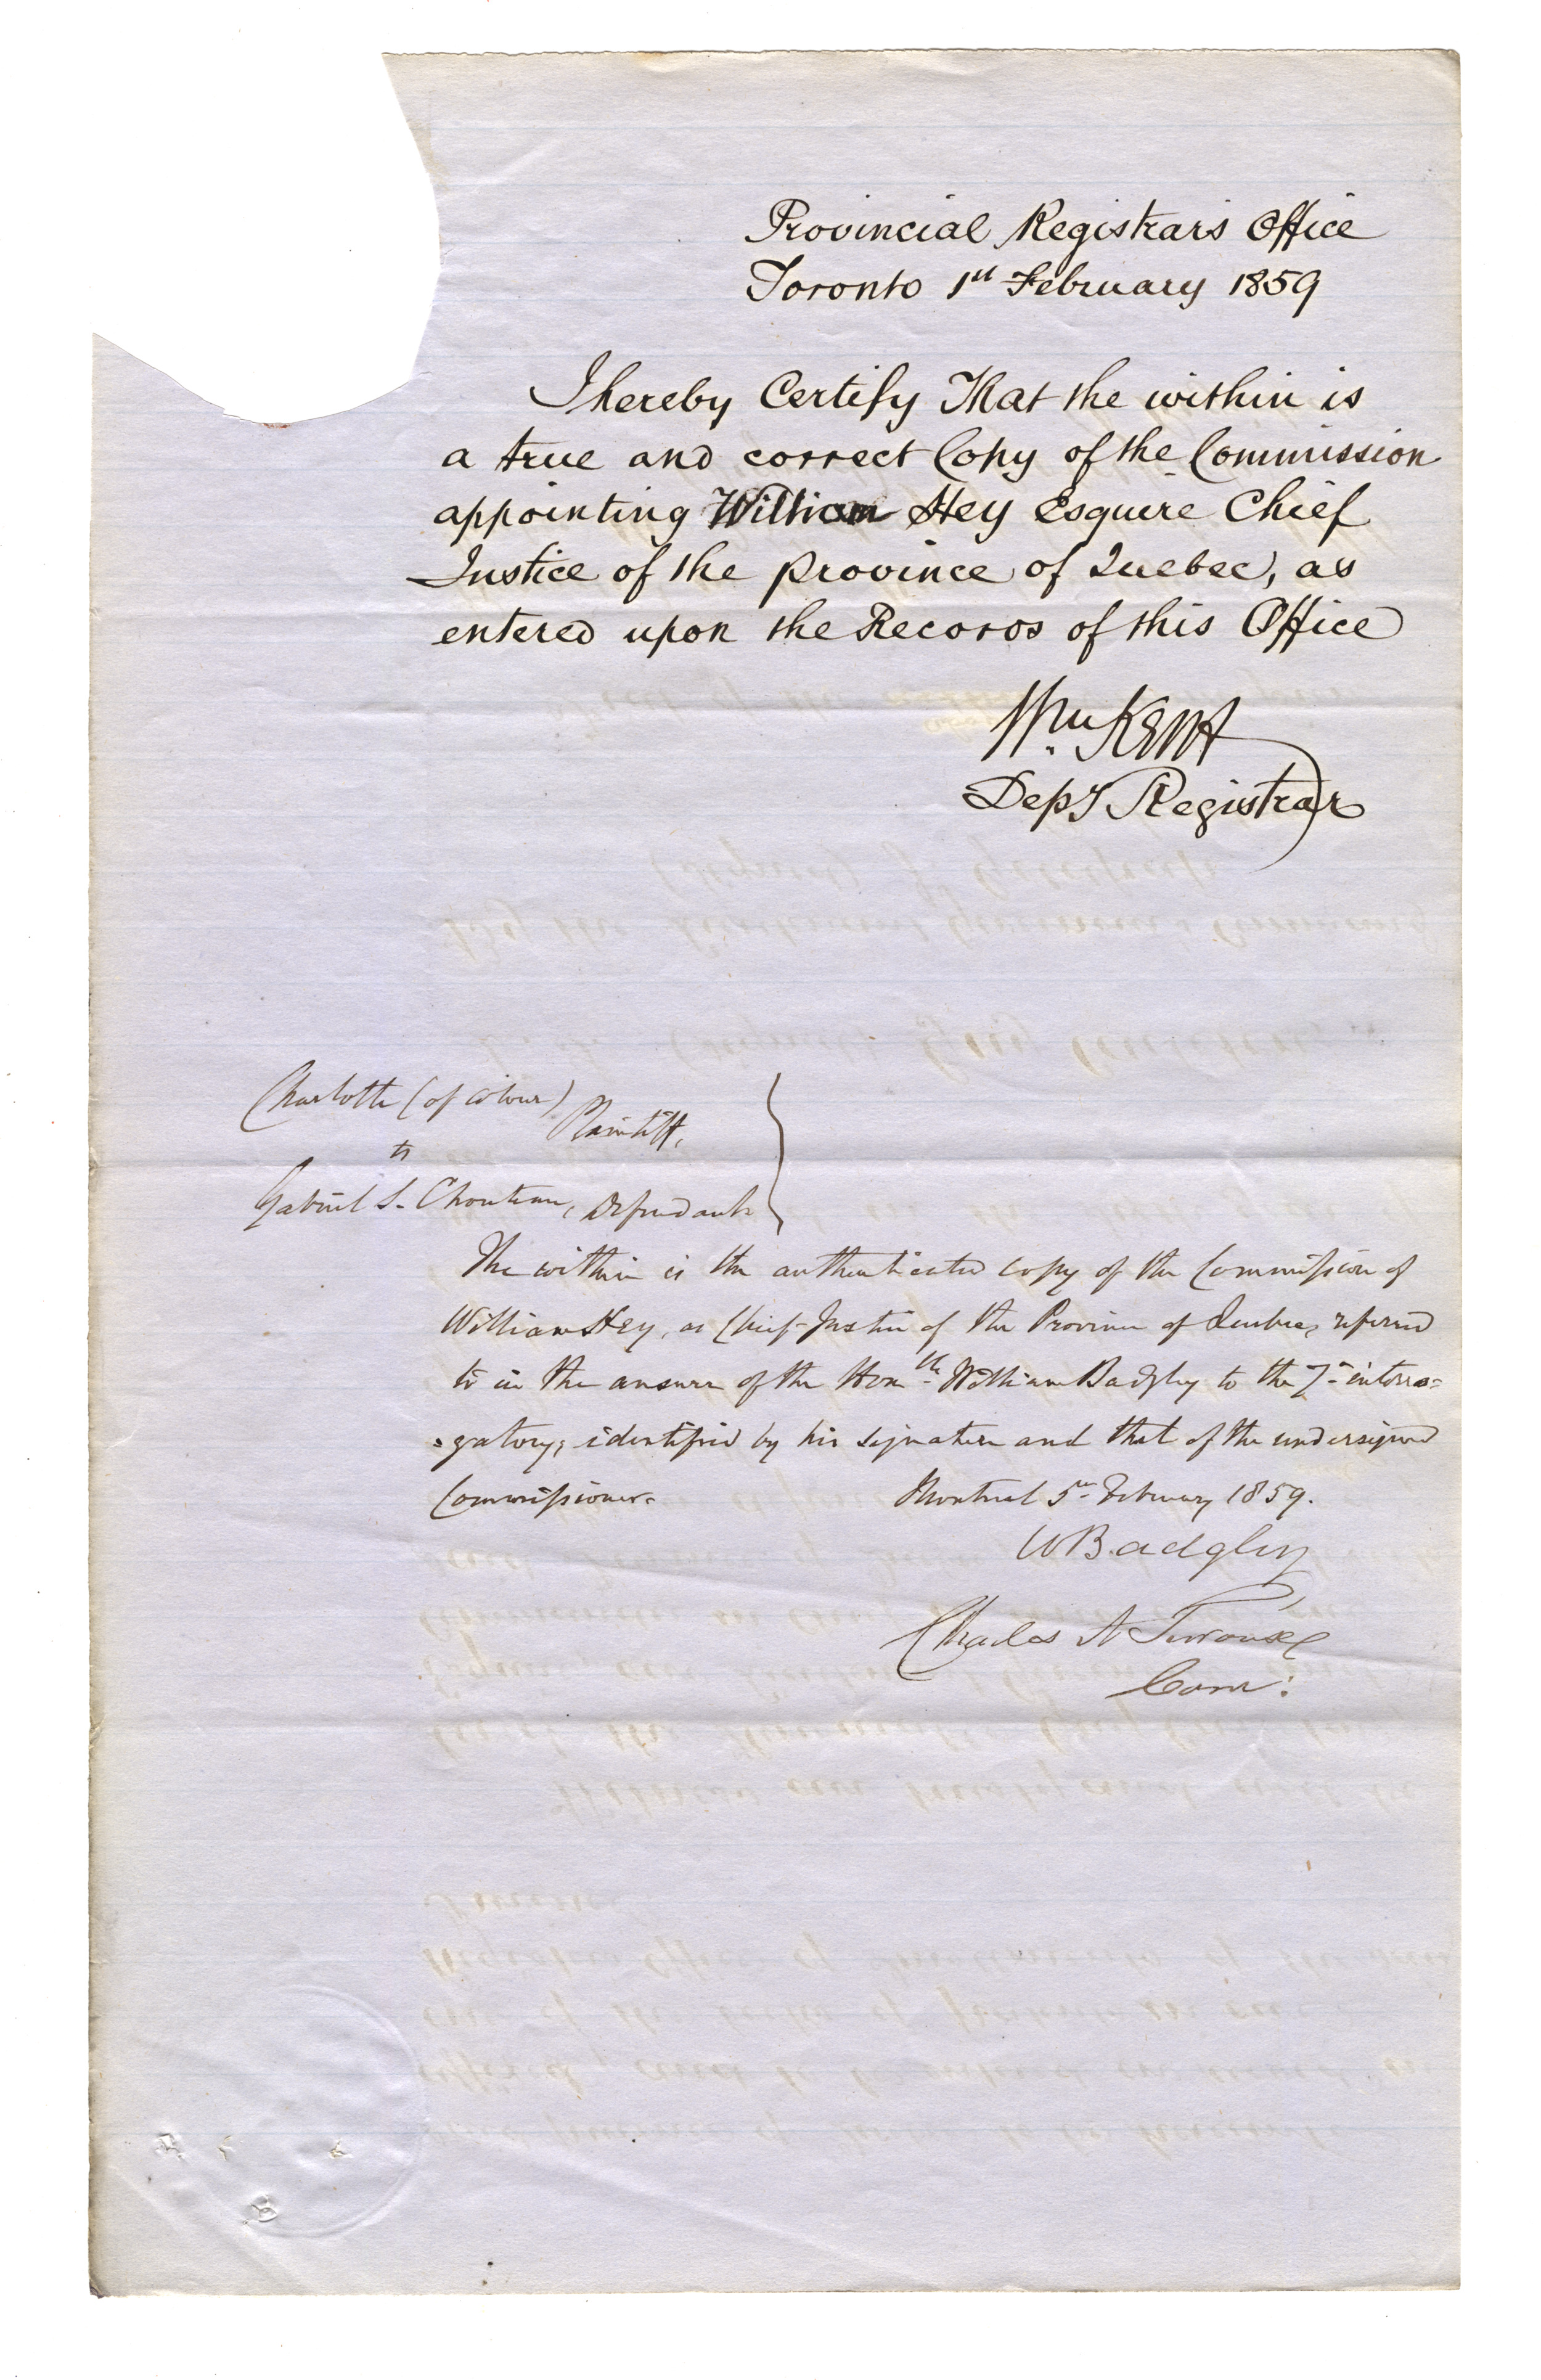 Provincial Registrar's Office
Toronto 1st February 1859
I hereby Certify That the within is
a true and correct Copy of the Commission
appointing William Hey Esquire Chief
Justice of the province of Quebec, as
entered upon the Records of this Office
Wm Kent
Depy Registrar
Charlotte (of colour)
Plaintiff,
vs
Gabriel S. Chouteau, Defendant
The within is the authenticated copy of the Commission of
William Hey, as Chief-Justice of the Province of Quebec, referred
to in the answer of the Honble William Badgley to the 7th interro=
=gatory, identified by his signature and that of the undersigned
Commissioner.
Montreal 5th February 1859.
W Badgley
Charles A Terroux
Comr: